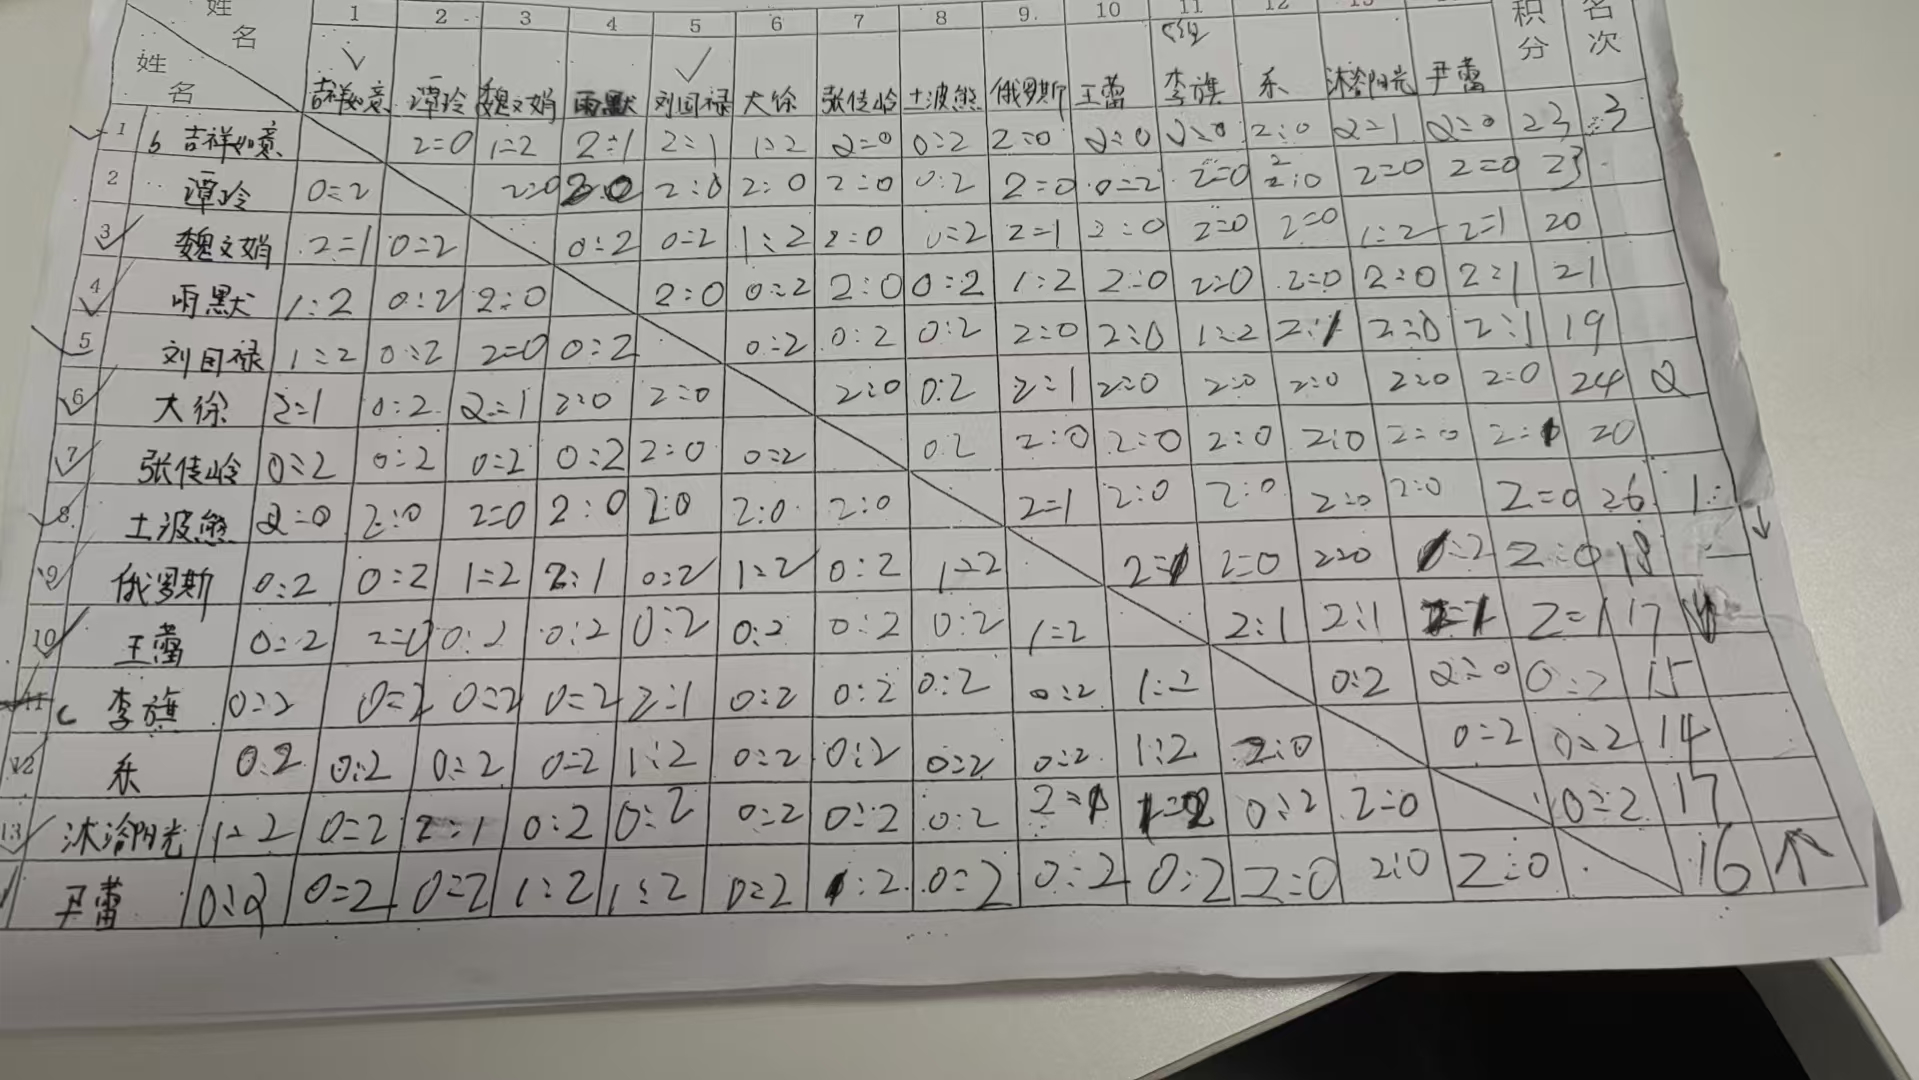 姓名 1 2 3 4 5 6 7 8 9. 10 11 12 13 积分 名次
姓名 吉祥如意 谭玲 魏文娟 雨默 刘国禄 大徐 张传岭 土波熊 俄罗斯 王蕾 李旗 东 沐浴阳光 尹蕾
1 b 吉祥如意 2:0 1:2 2:1 2:1 1:2 2:0 0:2 2:0 2:0 2:0 2:0 2:1 2:0 23 3
2 谭玲 0:2 2:0 2:0 2:0 2:0 2:0 0:2 2:0 0:2 2:0 2:0 2:0 2:0 23
3 魏文娟 2:1 0:2 0:2 0:2 1:2 2:0 0:2 2:1 2:0 2:0 2:0 1:2 2:1 20
4 雨默 1:2 0:2 2:0 2:0 0:2 2:0 0:2 1:2 2:0 2:0 2:0 2:0 2:1 21
5 刘国禄 1:2 0:2 2:0 0:2 0:2 0:2 0:2 2:0 2:0 1:2 2:1 2:0 2:1 19
6 大徐 2:1 0:2 2:1 2:0 2:0 2:0 0:2 2:1 2:0 2:0 2:0 2:0 2:0 24 2
7 张传岭 0:2 0:2 0:2 0:2 2:0 0:2 0:2 2:0 2:0 2:0 2:0 2:0 2:1 20
8 土波熊 2:0 2:0 2:0 2:0 2:0 2:0 2:0 2:1 2:0 2:0 2:0 2:0 2:0 26 1
9 俄罗斯 0:2 0:2 1:2 2:1 0:2 1:2 0:2 1:2 2:1 2:0 2:0 1:2 2:0 18
10 王蕾 0:2 2:0 0:2 0:2 0:2 0:2 0:2 0:2 1:2 2:1 2:1 2:1 2:1 17
11 c 李旗 0:2 0:2 0:2 0:2 2:1 0:2 0:2 0:2 0:2 1:2 0:2 2:0 0:2 15
12 东 0:2 0:2 0:2 0:2 1:2 0:2 0:2 0:2 0:2 1:2 2:0 0:2 0:2 14
13 沐浴阳光 1:2 0:2 2:1 0:2 0:2 0:2 0:2 0:2 2:1 1:2 0:2 2:0 0:2 17
尹蕾 0:2 0:2 0:2 1:2 1:2 0:2 1:2 0:2 0:2 0:2 2:0 2:0 2:0 16 ↑